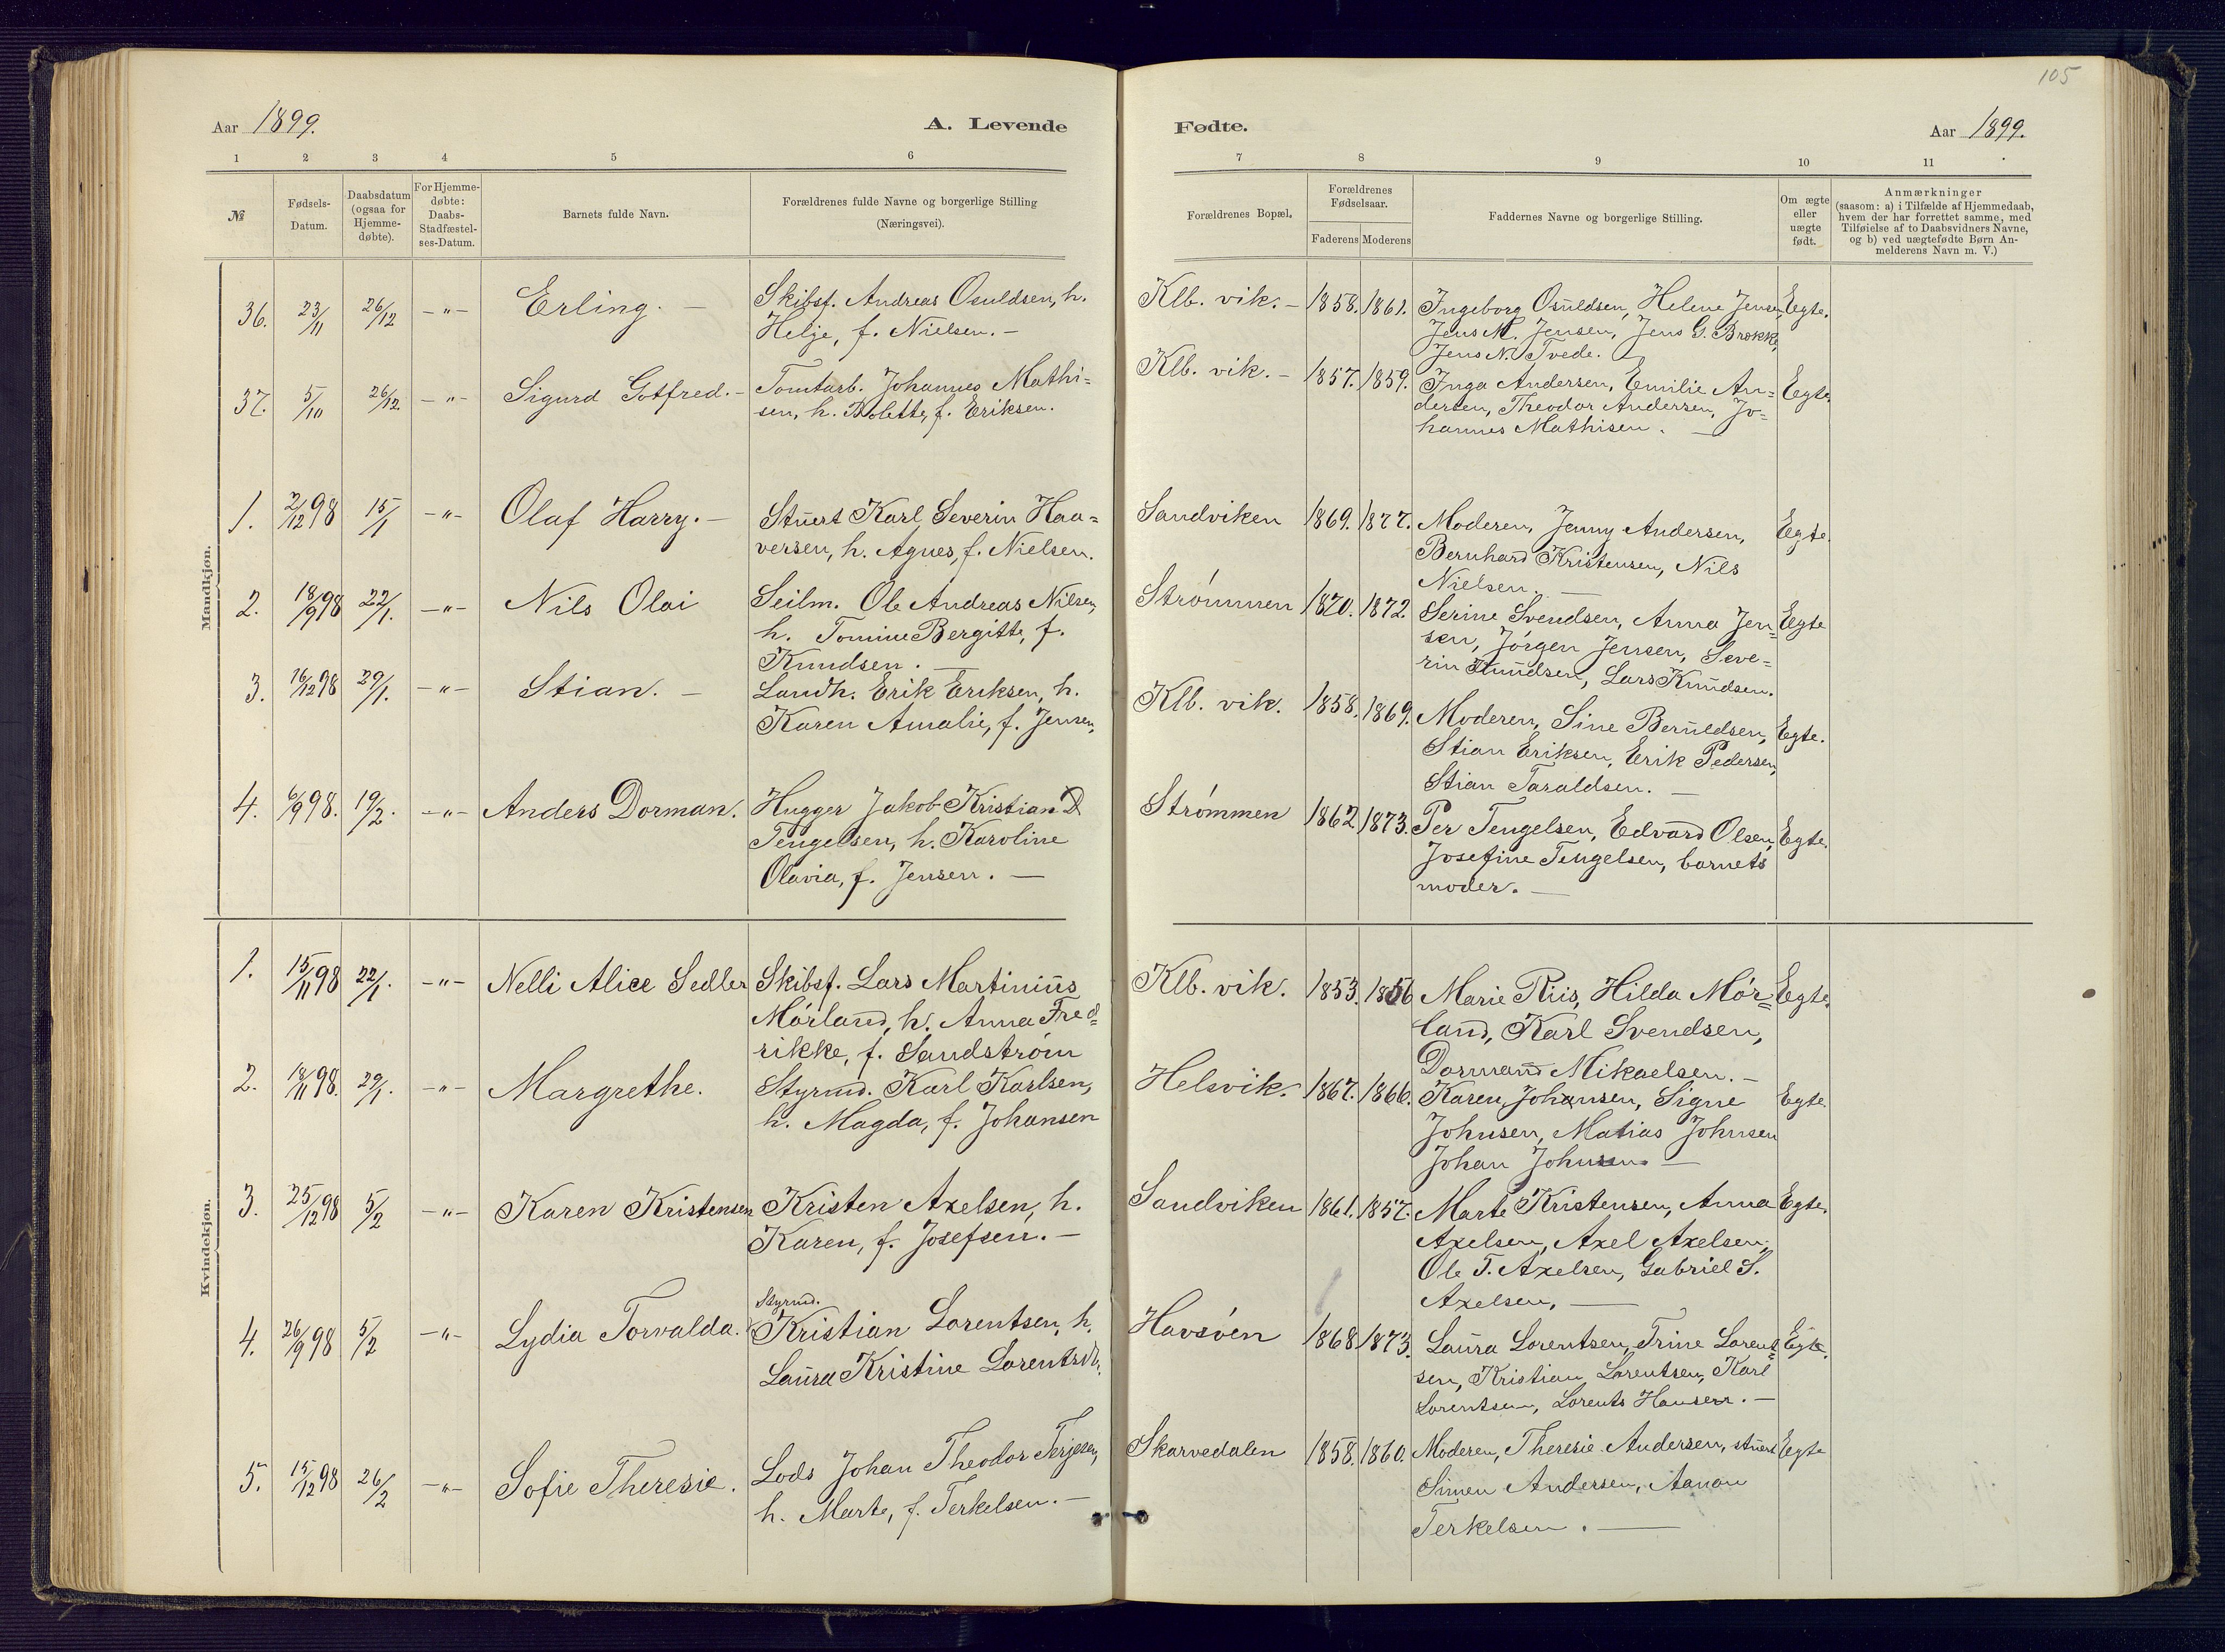 105
Aar 1899.
A. Levende
Fødte.
Aar 1899.
1 2 3 4 5 6 7 8 9 10 11
№
Fødsels-
Datum.
Daabsdatum
(ogsaa for
Hjemme-
døbte).
For Hjemme-
døbte:
Daabs-
Stadfæstel-
ses-Datum.
Barnets fulde Navn.
Forældrenes fulde Navne og borgerlige Stilling
(Næringsvei).
Forældrenes Bopæl.
Forældrenes
Fødselsaar.
Faderens Moderens
Faddernes Navne og borgerlige Stilling.
Om ægte
eller
uægte
født.
Anmærkninger
(saasom: a) i Tilfælde af Hjemmedaab,
hvem der har forrettet samme, med
Tilføielse af to Daabsvidners Navne,
og b) ved uægtefødte Børn An-
melderens Navn m. V.)
Mandkjøn.
36. 23/11 26/12 -"- Erling. -
Skibsf. Andreas Osuldsen, h.
Helje, f. Nielsen. -
Klb. vik. - 1858. 1861.
Ingeborg Osuldsen, Helene Jensen,
Jens M. Jensen, Jens G. Brøkke,
Jens N. Tvede.
Egte.
37. 5/10 26/12 -"- Sigurd Gotfred. -
Tomtarb. Johannes Mathi=
sen, h. Bolette, f. Eriksen.
Klb. vik. - 1857. 1859.
Inga Andersen, Emilie An=
dersen, Theodor Andersen, Jo=
hannes Mathisen. -
Egte.
1. 2/12 98 15/1 -"- Olaf Harry. -
Stuert Karl Severin Haa=
versen, h. Agnes, f. Nielsen.
Sandviken 1869. 1877.
Moderen, Jenny Andersen,
Bernhard Kristensen, Nils
Nielsen. -
Egte.
2. 18/9 98 22/1. -"- Nils Olai
Seilm. Ole Andreas Nilsen,
h. Tomine Bergitte, f.
Knudsen. -
Strømmen 1870. 1872.
Serine Svendsen, Anna Jen=
sen, Jørgen Jensen, Seve=
rin Knudsen, Lars Knudsen.
Egte
3. 16/12 98 29/1. -"- Stian. -
Landh. Erik Eriksen, h.
Karen Amalie, f. Jensen.
Klb. vik. 1858. 1869.
Moderen, Sine Beruldsen,
Stian Eriksen, Erik Pedersen,
Stian Taraldsen. -
Egte.
4. 6/9 98. 19/2. -"- Anders Dorman.
Hugger Jakob Kristian D
Tengelsen, h. Karoline
Olavia, f. Jensen. -
Strømmen 1862 1873.
Per Tengelsen, Edvard Olsen,
Josefine Tengelsen, barnets
moder. -
Egte.
Kvindekjøn.
1. 15/11 98 22/1. -"- Nelli Alice Sedler
Skibsf. Lars Martinius
Mørland, h. Anna Fred=
rikke, f. Sandstrøm
Klb. vik. 1853. 1856
Marie Riis, Hilda Mør=
land, Karl Svendsen,
Dormand Mikaelsen. -
Egte.
2. 18/11 98. 29/1. -"- Margrethe.
Styrmd. Karl Karlsen,
h. Magda, f. Johansen
Helsvik. 1867. 1866.
Karen Johansen, Signe
Johnsen, Matias Johnsen
Johan Johnsen -
Egte.
3. 25/12 98 5/2 -"- Karen Kristensen
Kristen Axelsen, h.
Karen, f. Josefsen. -
Sandviken 1861. 1857.
Marte Kristensen, Anna
Axelsen, Axel Axelsen,
Ole T. Axelsen, Gabriel S.
Axelsen, -
Egte.
4. 26/9 98 5/2 -"- Lydia Torvalda.
Styrmd.
Kristian Lorentsen, h.
Laura Kristine Lorentsdt.
Havsøen 1868 1873.
Laura Lorentsen, Trine Lorent=
sen, Kristian Lorentsen, Karl
Lorentsen, Lorents Hansen. -
Egte.
5. 15/12 98 26/2 -"- Sofie Theresie.
Lods Johan Theodor Terjesen,
h. Marte, f. Terkelsen. -
Skarvedalen 1858. 1860.
Moderen, Theresie Andersen, stuert
Simen Andersen, Aanon
Terkelsen. -
Egte